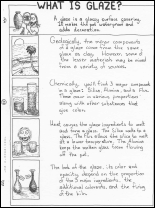 WHAT IS GLAZE?
A glaze is a glassy surface covering.
It makes the pot waterproof and
adds decoration.
Geologically, the major components
of a glaze come from the same
glassy as clay. However some of
the lower materials may be used
from a variety of sources.
Chemically, you'll find 3 major components
in a glaze: Silica, Alumina, and a Flux.
These occur in various proportions
along with other substances that
give color.
Heat causes the glaze ingredients to melt
and form a glaze. The Silica walls to a
glass. The Flux allows the glaze to melt
at a lower temperature. The Alumina
keeps the molten glass from flowing
off the pot.
The look of the glaze, its color and
opacity, depend on the proportion
of the 3 major ingredients, the
additional colorants, and the firing
of the kiln.